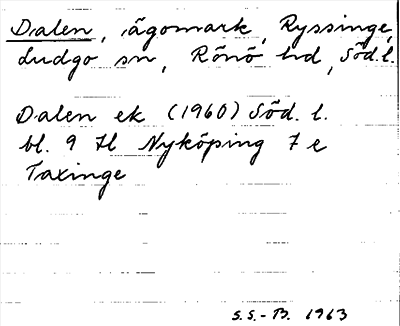 Dalen, ägomark, Ryssinge,
Ludgo sn, Rönö hd, Söd.l.
Dalen ek (1960) Söd. l.
bl. 9 H Nyköping 7 e
Taxinge
S.S.-B. 1963